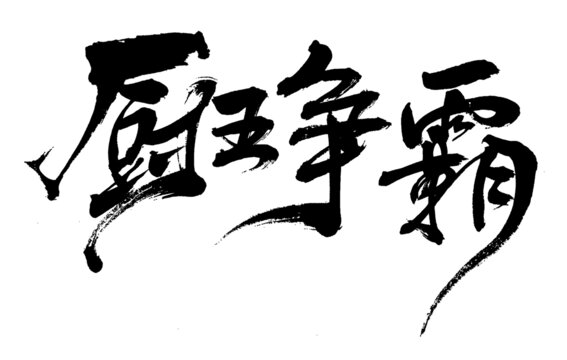 厨王争霸